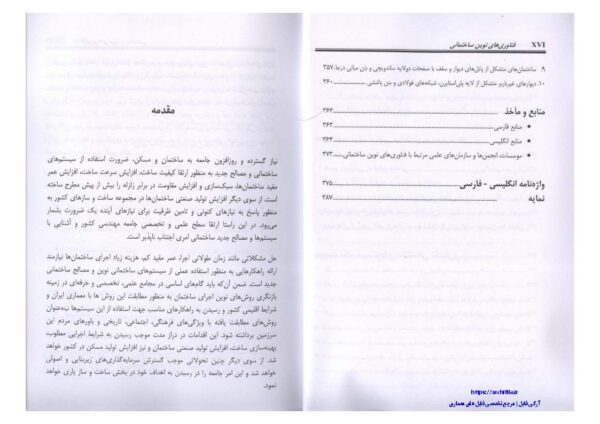 XVI فناوری‌های نوین ساختمانی
۹. ساختمان‌های متشکل از پانل‌های دیوار و سقف با صفحات دولایه ساندویچی و بتن میانی درجا ۳۵۷
۱۰. دیوارهای غیرباربر متشکل از لایه پلی‌استایرن، شبکه‌های فولادی و بتن پاششی ۳۶۰
منابع و مآخذ ۳۶۳
• منابع فارسی ۳۶۳
• منابع انگلیسی ۳۶۴
• موسسات، انجمن‌ها و سازمان‌های علمی مرتبط با فناوری‌های نوین ساختمانی ۳۷۳
واژه‌نامه انگلیسی - فارسی ۳۷۵
نمایه ۳۸۷
https://archifile.ir
آرکی فایل | مرجع تخصصی فایل های معماری
مقدمه
نیاز گسترده و روزافزون جامعه به ساختمان و مسکن، ضرورت استفاده از سیستم‌های
ساختمانی و مصالح جدید به منظور ارتقا کیفیت ساخت، افزایش سرعت ساخت، افزایش عمر
مفید ساختمان‌ها، سبک‌سازی و افزایش مقاومت در برابر زلزله را بیش از پیش مطرح ساخته
است. از سوی دیگر افزایش تولید صنعتی ساختمان‌ها در مجموعه ساخت و سازهای کشور به
منظور پاسخ به نیازهای کنونی و تامین ظرفیت برای نیازهای آینده یک ضرورت بشمار
می‌رود. در این راستا ارتقا سطح علمی و تخصصی جامعه مهندسی کشور و آشنایی با
سیستم‌ها و مصالح جدید ساختمانی امری اجتناب ناپذیر است.
حل مشکلاتی مانند زمان طولانی اجرا، عمر مفید کم، هزینه زیاد اجرای ساختمان‌ها نیازمند
ارائه راهکارهایی به منظور استفاده عملی از سیستم‌های ساختمانی نوین و مصالح ساختمانی
جدید است. ضمن آن‌که باید گام‌های اساسی در مجامع علمی، تخصصی و حرفه‌ای در زمینه
بازنگری روش‌های نوین اجرای ساختمان به منظور مطابقت این روش ها با معماری ایران و
شرایط اقلیمی کشور و رسیدن به راهکارهای مناسب جهت استفاده از این سیستم‌ها به‌عنوان
روش‌های مطابقت یافته با ویژگی‌های فرهنگی، اجتماعی، تاریخی و باورهای مردم این
سرزمین برداشته شود. این اقدامات در دراز مدت موجب رسیدن به شرایط اجرایی مطلوب،
بهینه‌سازی ساخت، افزایش تولید صنعتی ساختمان و نیز افزایش تولید مسکن در کشور خواهد
شد. از سوی دیگر چنین تحولاتی موجب گسترش سرمایه‌گذاری‌های زیربنایی و اصولی
خواهد شد و این امر جامعه را در رسیدن به اهداف خود در بخش ساخت و ساز یاری خواهد
نمود.